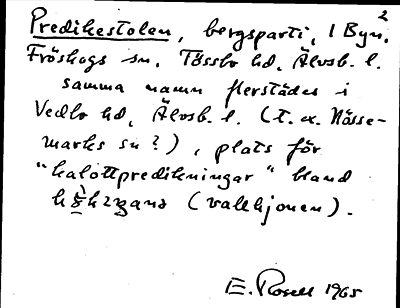 2
Predikestolen, bergsparti, 1 Byn,
Fröskogs sn. Tössbo hd. Älvsb. l.
samma namn flerstädes i
Vedbo hd, Älvsb. l. (t. ex. Nösse-
marks sn?), plats för
"kalottpredikningar" bland
(vallhjonen).
E. Rosell 1965